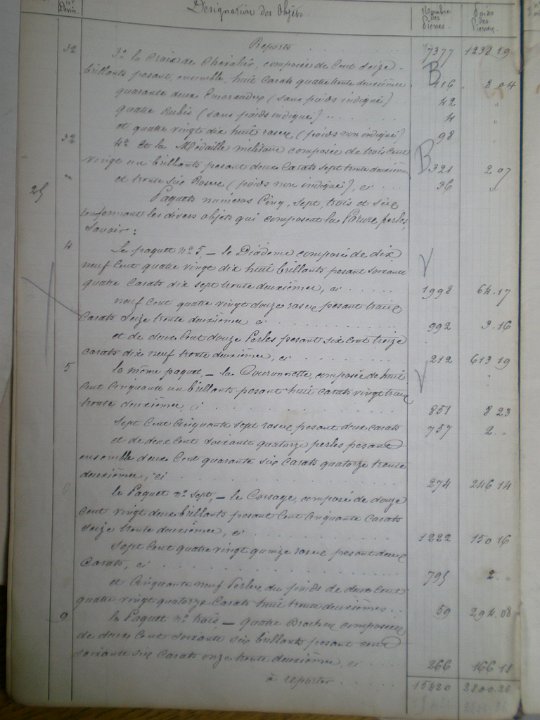 Désignation des Objets
Nombre des Pierres
Poids des Pierres
Report 7377 1232.19
32 3° la Croix de Chevalier, composée de Cent Seize
brillants pesant ensemble huit Carats quatre trente deuxième 116 8.04
quarante deux Emeraudes (sans poids indiqué) 42 "
quatre Rubis (sans poids indiqué) 4 "
et quatre vingt dix huit roses (poids non indiqué) 98
32 4° et la Médaille militaire composée de trois Cent
vingt un brillants pesant deux Carats sept trente deuxième 321 2.07
et trente six Roses (poids non indiqué), ci 36 "
25
Paquets numéros Cinq, Sept, trois et Six
renfermant les divers objets qui composent la Parure perles
Savoir :
4 Le paquet n° 5, – le Diadème composé de dix
neuf Cent quatre vingt dix huit brillants pesant soixante
quatre Carats dix sept trente deuxième, ci 1998 64.17
neuf Cent quatre vingt douze roses pesant trois
Carats Seize trente deuxième, ci 992 3.16
et de deux Cent douze Perles pesants six Cent treize
Carats dix neuf trente deuxième, ci 212 613.19
5 le même paquet – la Couronnette, composée de huit
Cent Cinquante un brillants pesant huit Carats vingt trois
trente deuxième, ci 851 8.23
Sept Cent Cinquante sept roses pesant deux Carats 757 2.
et de deux Cent soixante quatorze perles pesant
ensemble deux Cent quarante six Carats quatorze trente
deuxième, ci 274 246.14
le Paquet n° sept, – le Corsage, composé de douze
Cent vingt deux brillants pesant Cent Cinquante Carats
Seize trente deuxième, ci 1222 150.16
Sept Cent quatre vingt quinze roses pesant deux
Carats, ci 795 2.
et Cinquante neuf Perles du poids de deux Cent
quatre vingt quatorze Carats huit trente deuxièmes 59 294.08
9 le Paquet n° trois – quatre Broches composées
de deux Cent soixante six brillants pesant Cent
soixante six Carats onze trente deuxième, ci 266
à reporter 15420